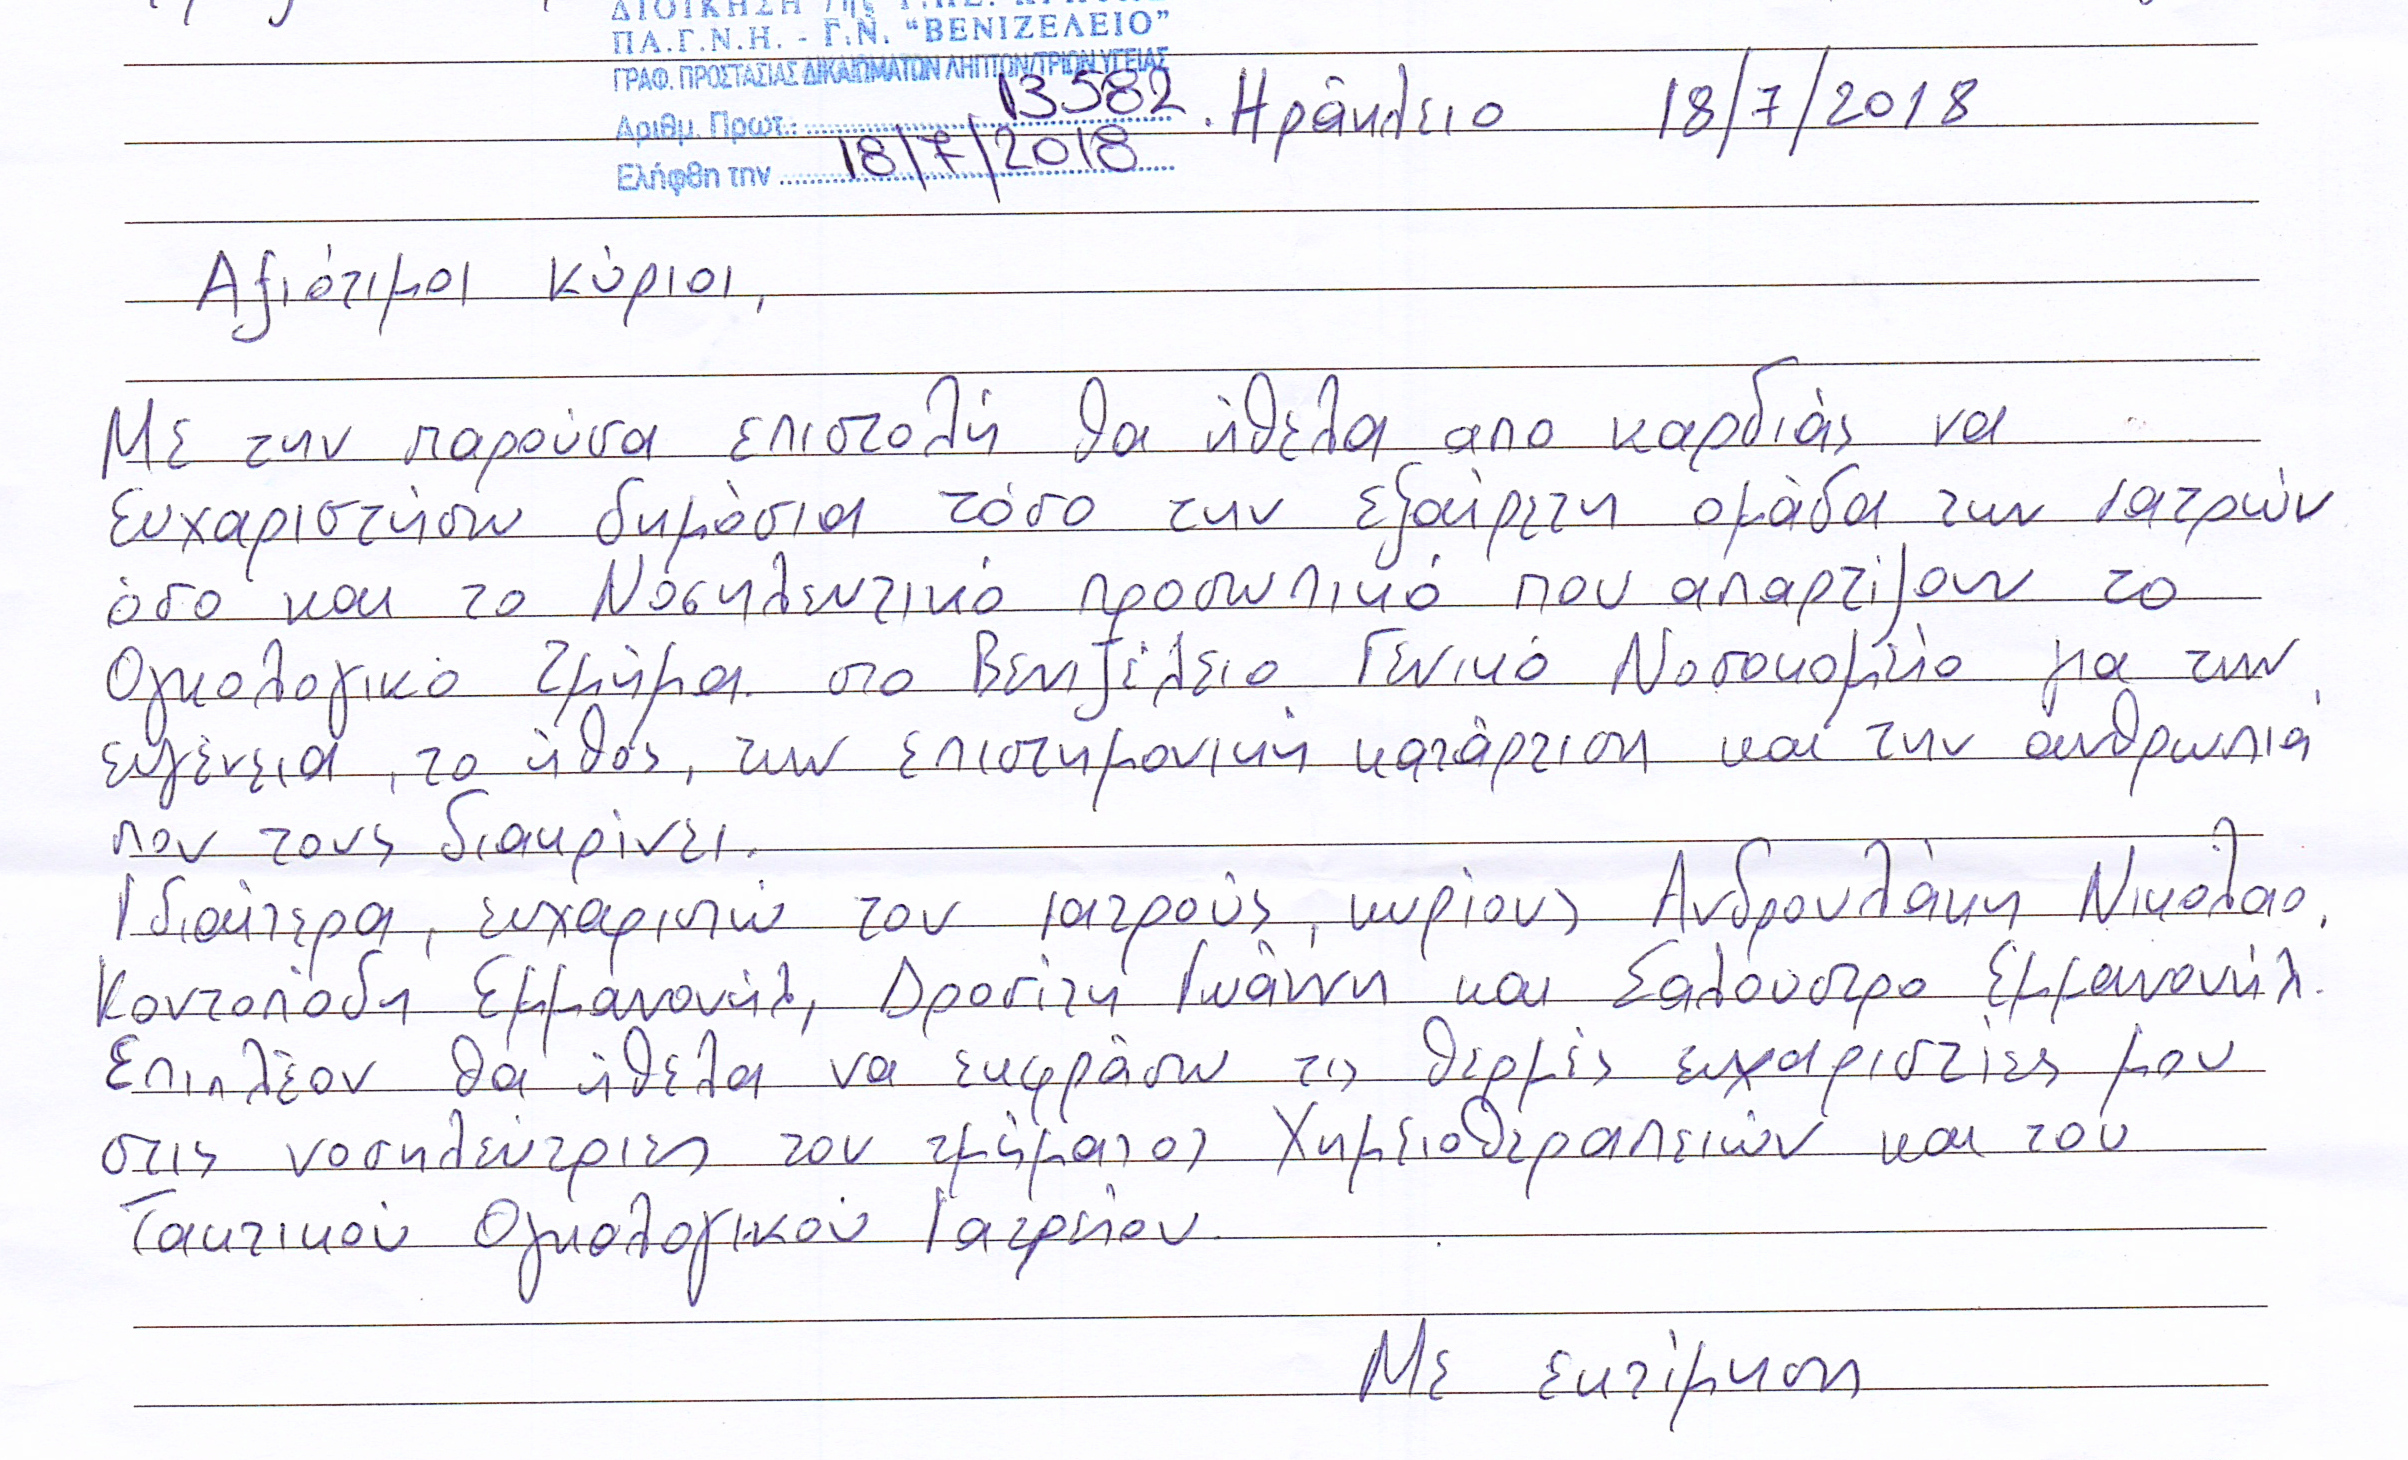 ΔΙΟΙΚΗΣΗ 7ης
ΠΑ.Γ.Ν.Η. - Γ.Ν. "ΒΕΝΙΖΕΛΕΙΟ"
ΓΡΑΦ. ΠΡΟΣΤΑΣΙΑΣ ΔΙΚΑΙΩΜΑΤΩΝ ΛΗΠΤΩΝ/ΤΡΙΩΝ ΥΓΕΙΑΣ
Αριθμ. Πρωτ.: 13582
Ελήφθη την 18/7/2018
Ηράκλειο 18/7/2018
Αξιότιμοι κύριοι,
Με την παρούσα επιστολή θα ήθελα απο καρδιάς να
ευχαριστήσω δημόσια τόσο την εξαίρετη ομάδα των ιατρών
όσο και το Νοσηλευτικό προσωπικό που απαρτίζουν το
Ογκολογικό Τμήμα στο Βενιζέλειο Γενικό Νοσοκομείο για την
ευγένεια, το ήθος, την επιστημονική κατάρτιση και την ανθρωπιά
που τους διακρίνει.
Ιδιαίτερα, ευχαριστώ τον ιατρούς, κυρίους Ανδρουλάκη Νικόλαο,
Κοντοπόδη Εμμανουήλ, Δροσίτη Ιωάννη και Σαλούστρο Εμμανουήλ.
Επιπλέον θα ήθελα να εκφράσω τις θερμές ευχαριστίες μου
στις νοσηλεύτριες του τμήματος Χημειοθεραπειών και του
Τακτικού Ογκολογικού Ιατρείου.
Με εκτίμηση